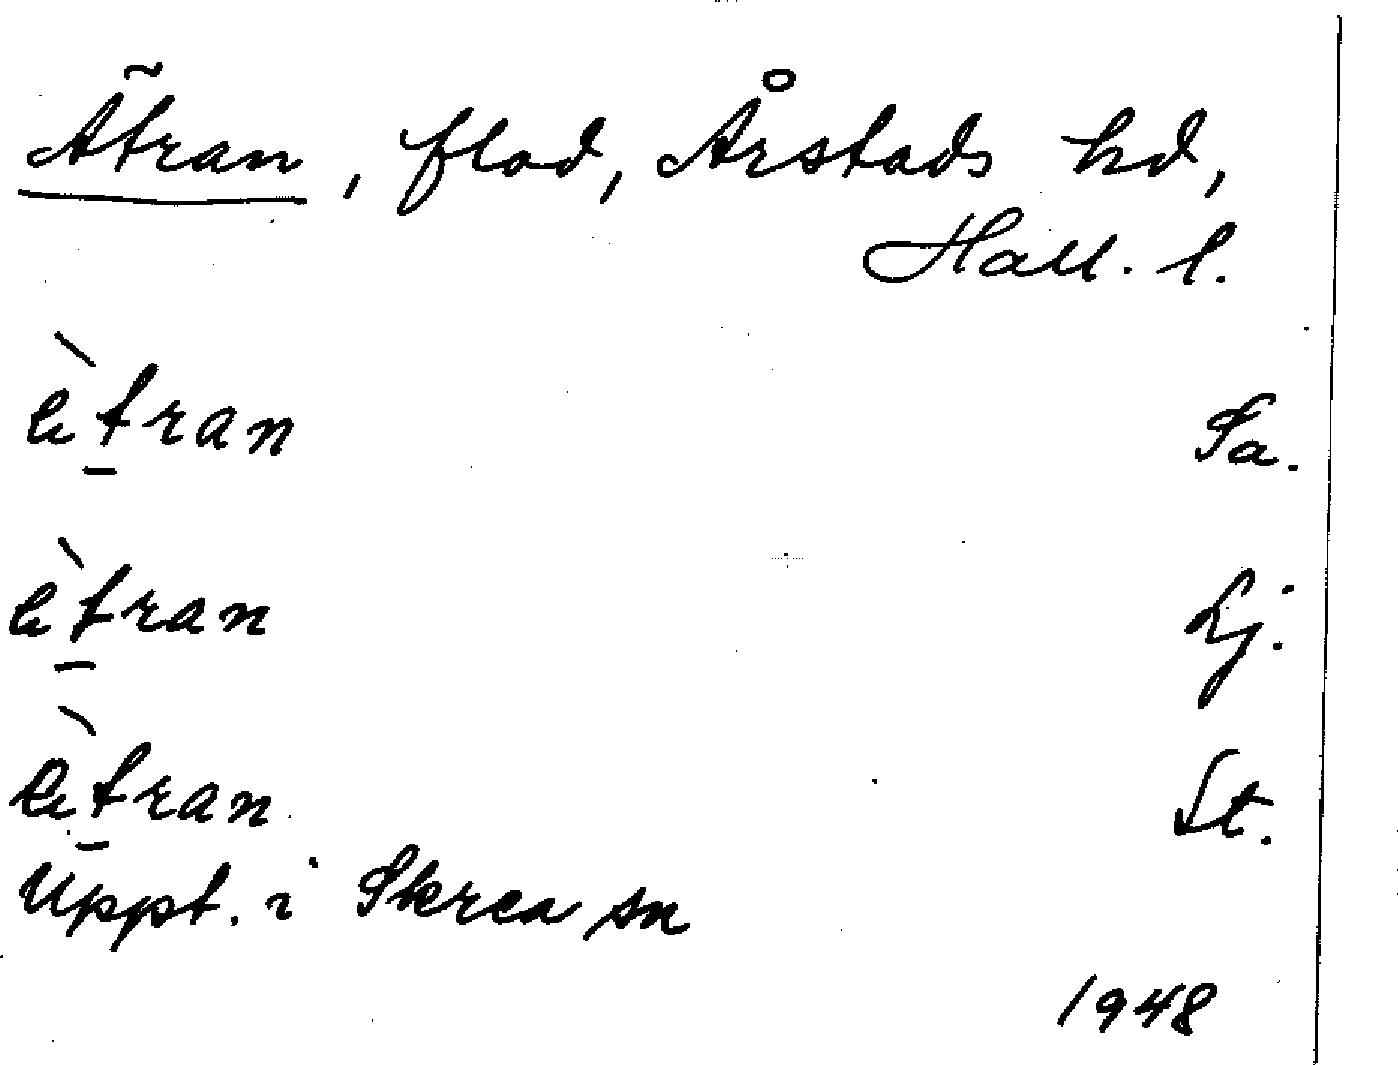 Ätran, flod, Årstads hd,
Hall. l.
è̀tran Sa.
è̀tran Lj.
è̀tran St.
Uppt. i Skrea sn
1948